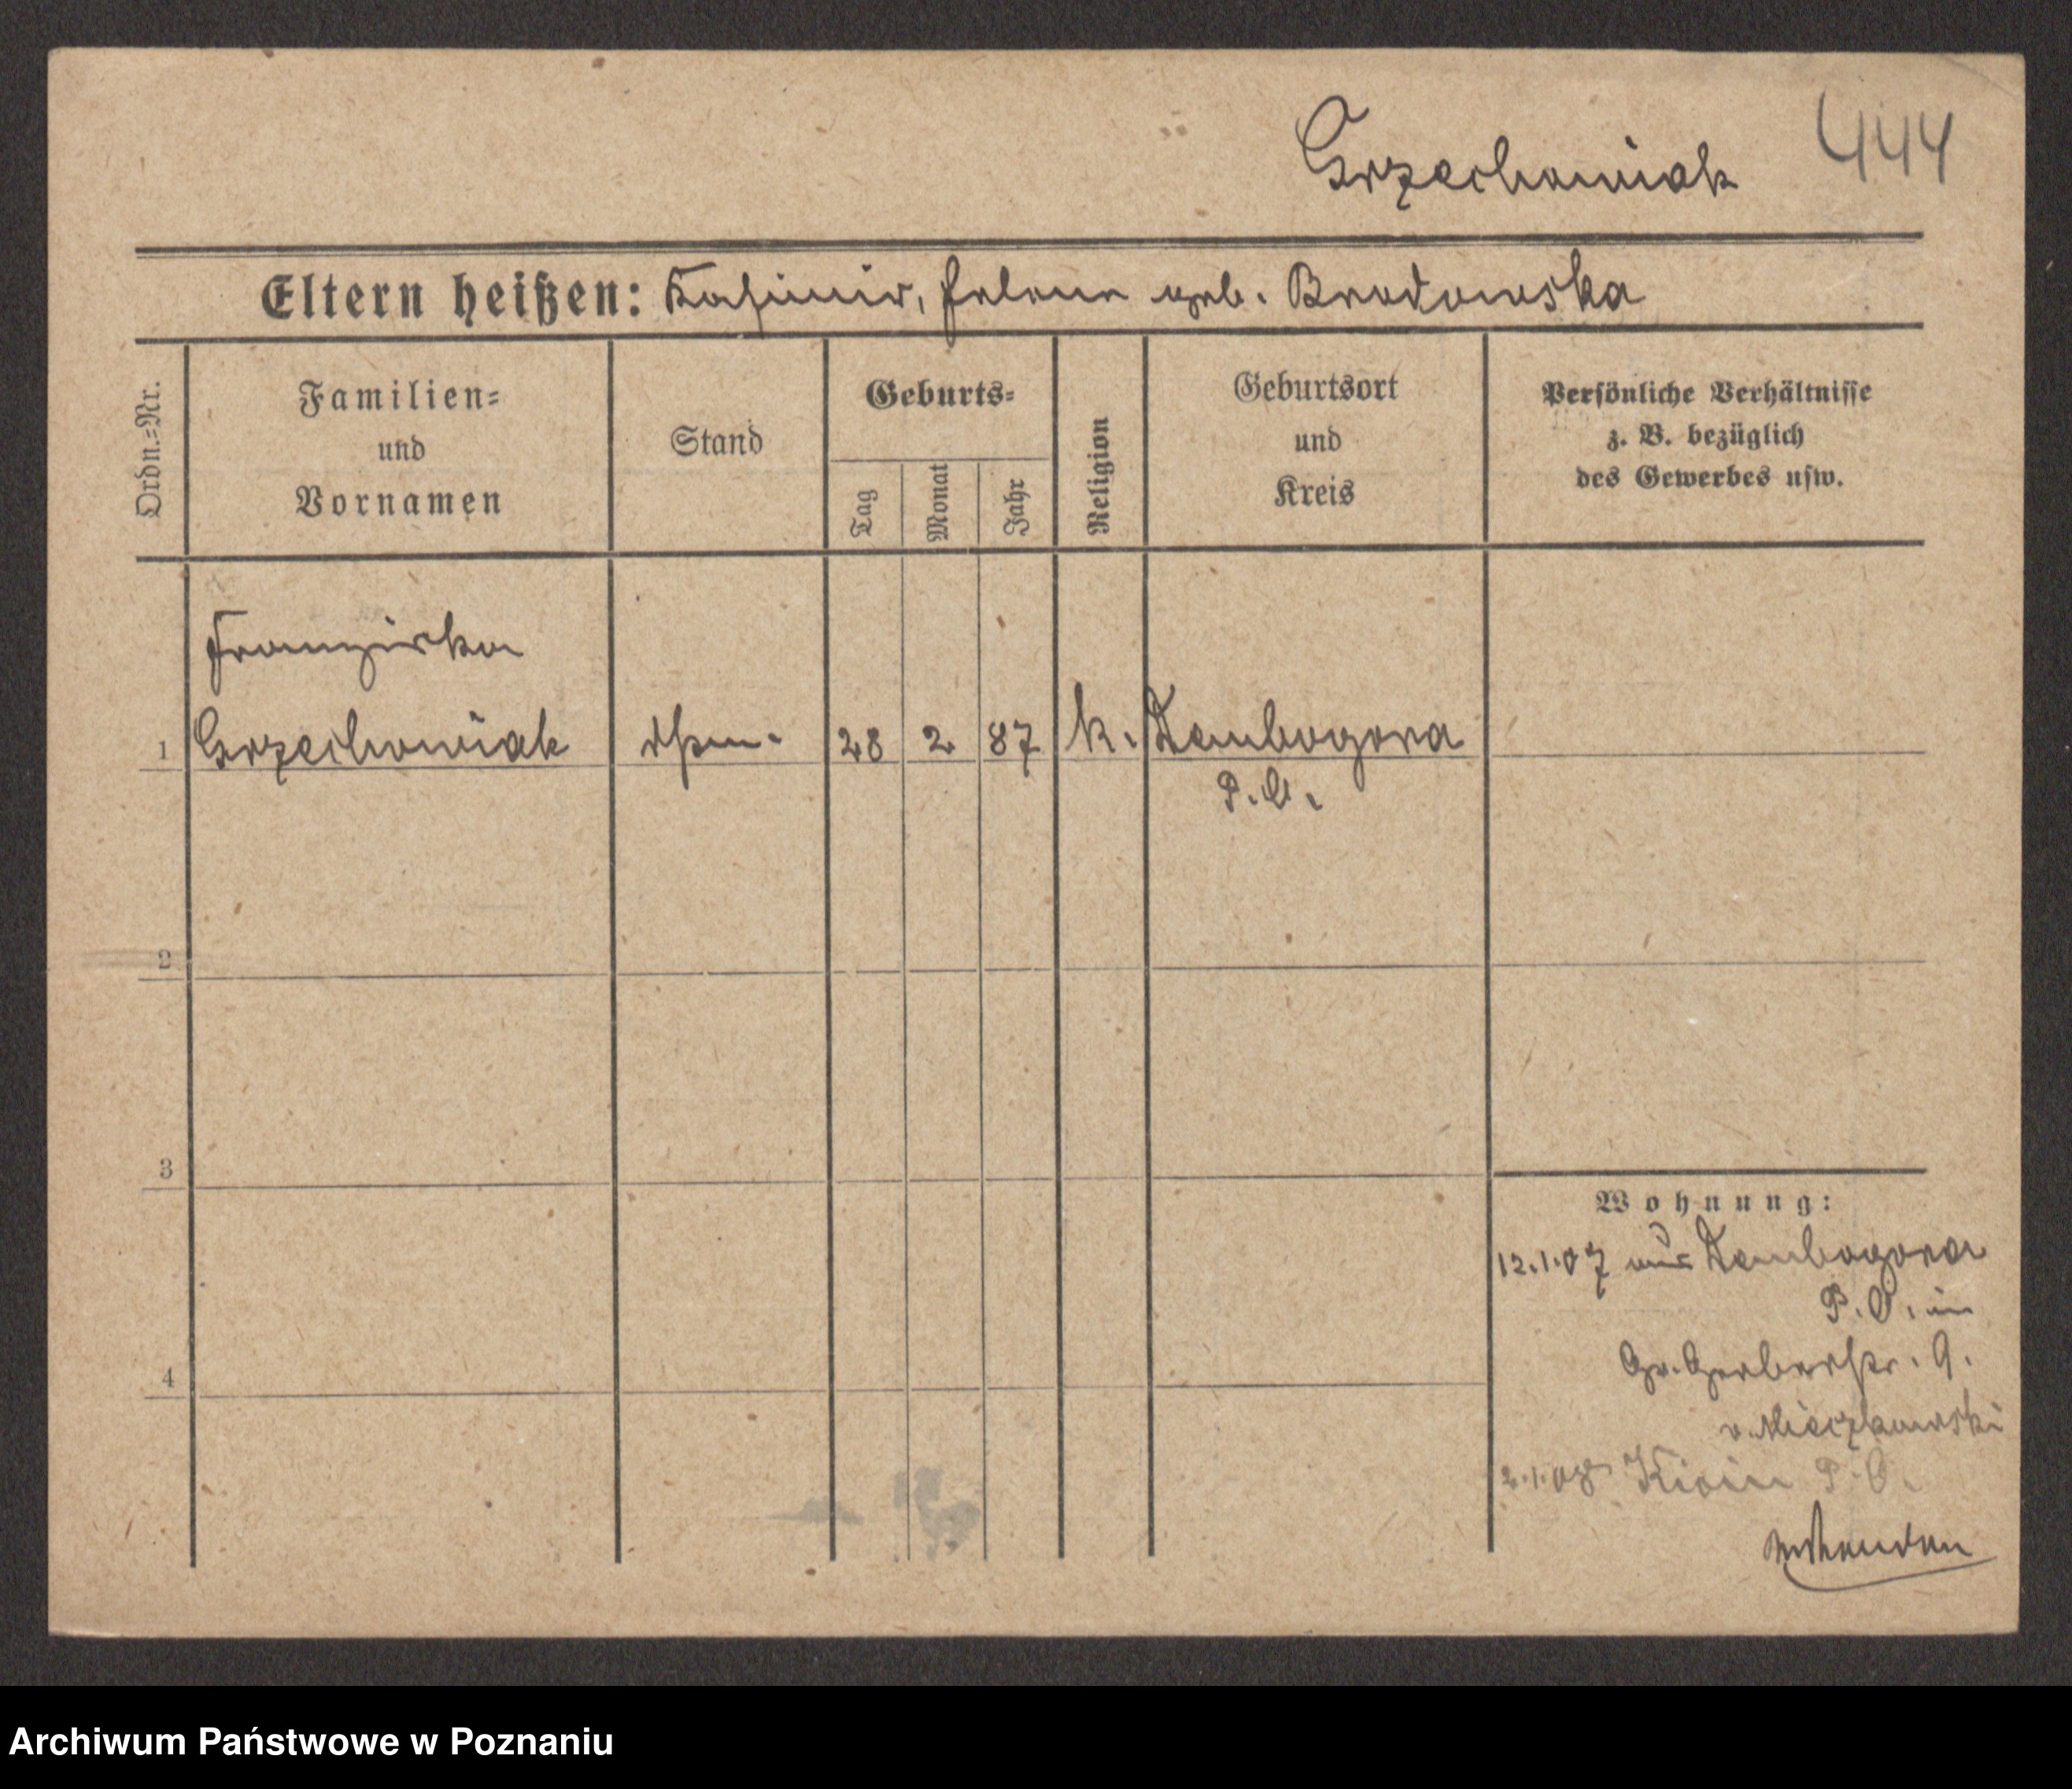 Grzechowiak 444
Eltern heißen: Kasimir, Helene geb. Brodowska
Ordn.=Nr.
Familien=
und
Vornamen
Stand
Geburts=
Tag
Monat
Jahr
Religion
Geburtsort
und
Kreis
Persönliche Verhältnisse
z. B. bezüglich
des Gewerbes usw.
Franziska
1 Grzechowiak 28 2 87 k. Dembogora
P. O.
2
3
Wohnung:
12.1.07 aus Dembogora
P. O. in
4
Gr. Gerberstr. 9.
v. Mieczkowski
2.1.08 P. O.
Archiwum Państwowe w Poznaniu